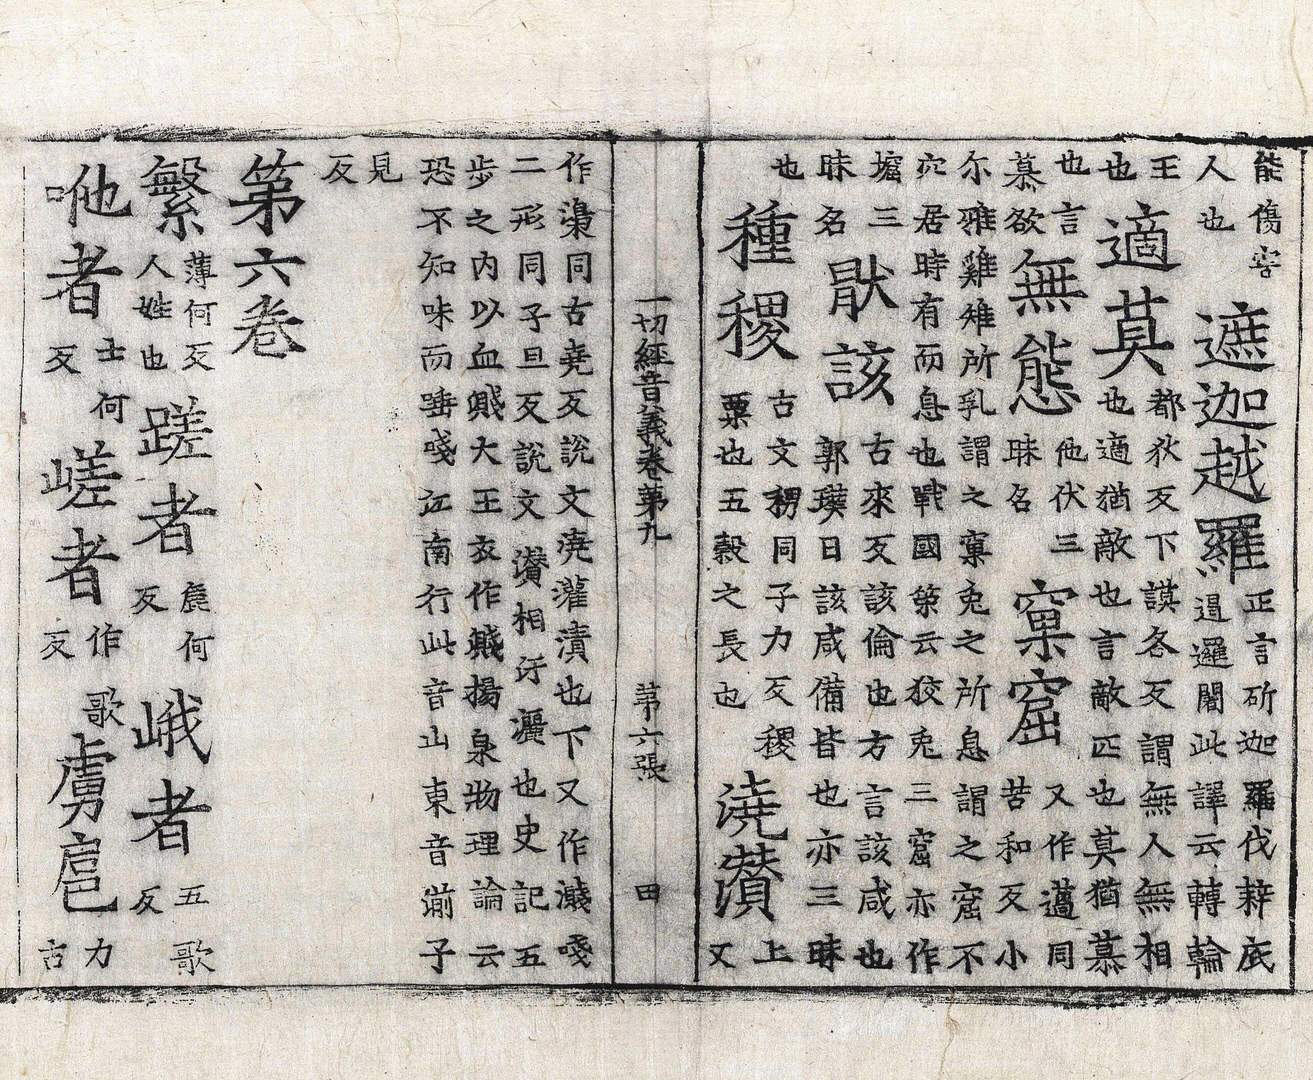 能傷害
人也
遮迦越羅
正言斫迦羅伐辢底
遏邏闍此譯云轉輪
王
也
適莫
都狄反下謨各反謂無人無相
也適猶敵也言敵匹也莫猶慕
也言
慕欲
無態
他伏三
昧名
窠窟
又作薖同
苦和反小
尒雅雞雉所乳謂之窠兔之所息謂之窟不
穴居時有而息也戰國策云狡兔三窟亦作
堀三
昧名
㕤該
古來反該倫也方言該咸也
郭璞曰該咸備皆也亦三昧
也
種稷
古文稷同子力反稷
粟也五穀之長也
澆灒
上
又
作澆同古堯反說文澆灌漬也下又作濺㳨
二形同子旦反說文灒相汙灑也史記五
步之内以血濺大王衣作濺揚泉物理論云
恐不知味而唾㳨江南行此音山東音湔子
見
反
一切經音義卷第九
第六張
田
第六卷
繁
薄何反
人姓也
蹉者
麁何
反
峨者
五歌
反
咃者
土何
反
嵯者
作歌
反
虜扈
力
古